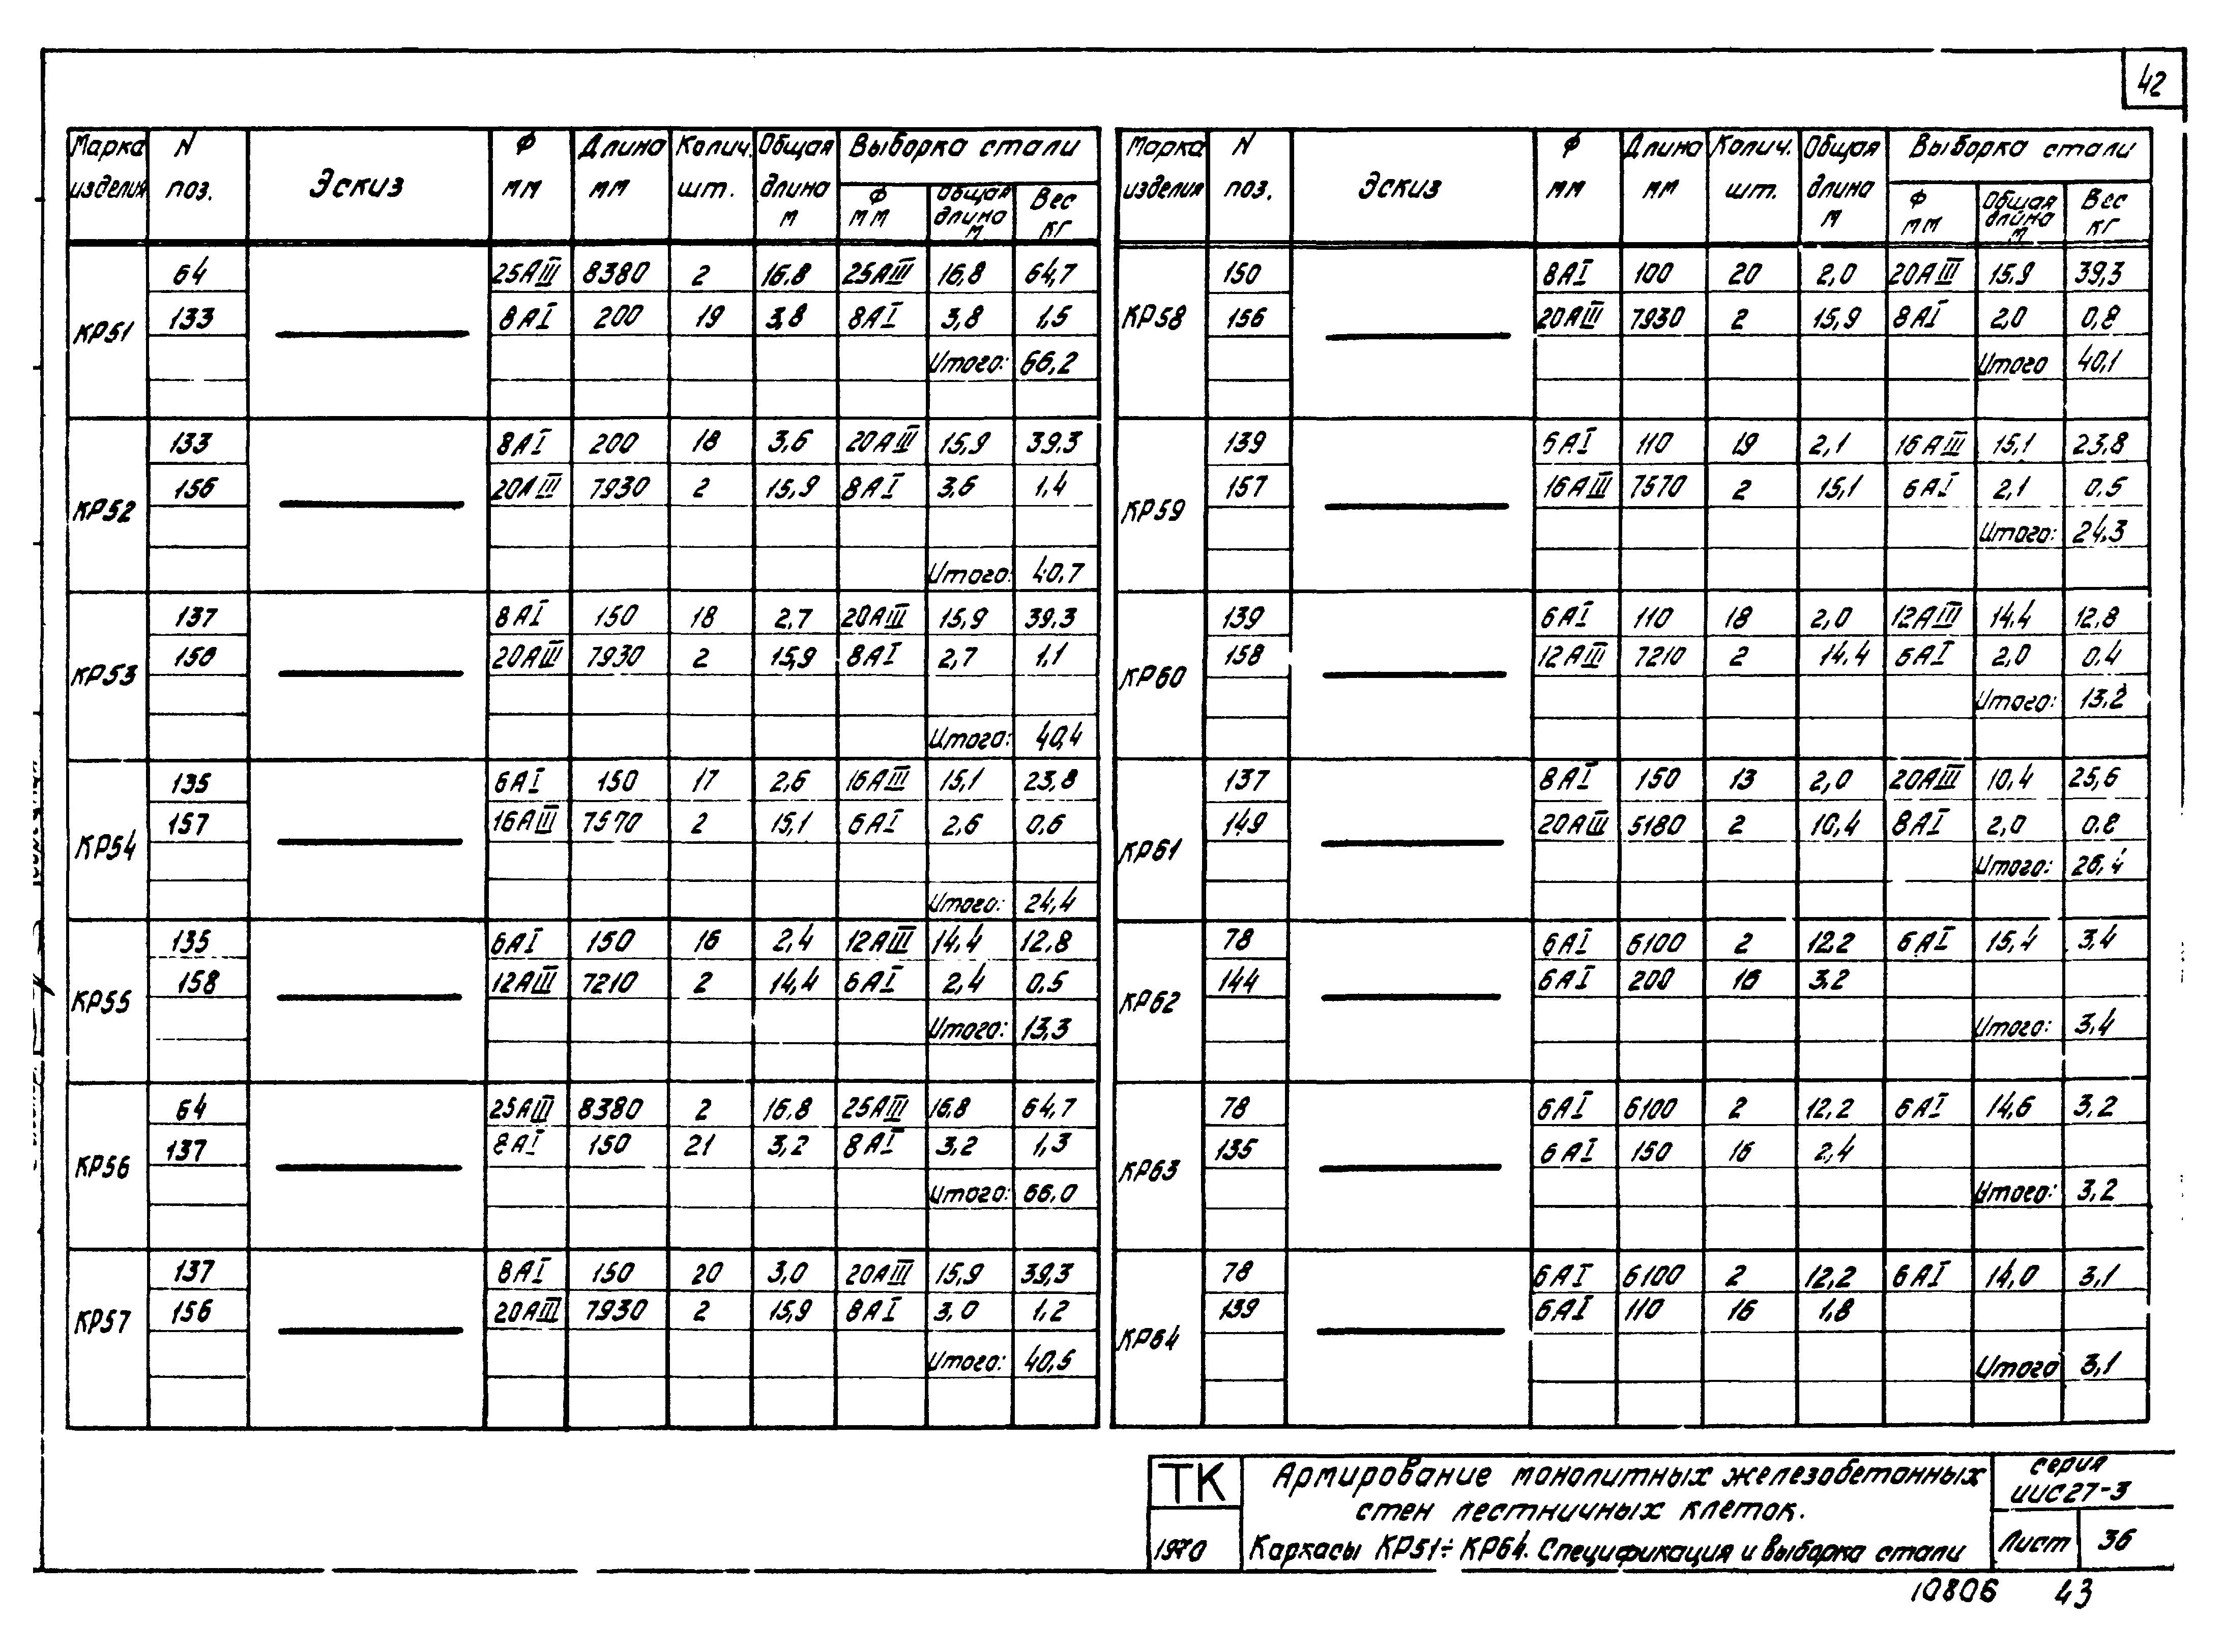 42
Марка изделия N поз. Эскиз Ф мм Длина мм Колич. шт. Общая длина м Выборка стали Ф мм Общая длина м Вес кг
КР51
64 25АIII 8380 2 16.8 25АIII 16,8 64,7
133 8АI 200 19 3,8 8АI 3,8 1,5
Итого: 66,2
КР52
133 8АI 200 18 3,6 20АIII 15,9 39,3
156 20АIII 7930 2 15,9 8АI 3,6 1,4
Итого: 40,7
КР53
137 8АI 150 18 2,7 20АIII 15,9 39,3
156 20АIII 7930 2 15,9 8АI 2,7 1,1
Итого: 40,4
КР54
135 6АI 150 17 2,6 16АIII 15,1 23,8
157 16АIII 7570 2 15,1 6АI 2,6 0,6
Итого: 24,4
КР55
135 6АI 150 16 2,4 12АIII 14,4 12,8
158 12АIII 7210 2 14,4 6АI 2,4 0,5
Итого: 13,3
КР56
64 25АIII 8380 2 16,8 25АIII 16,8 64,7
137 8АI 150 21 3,2 8АI 3,2 1,3
Итого: 66,0
КР57
137 8АI 150 20 3,0 20АIII 15,9 39,3
156 20АIII 7930 2 15,9 8АI 3,0 1,2
Итого: 40,5
Марка изделия N поз. Эскиз Ф мм Длина мм Колич. шт. Общая длина м Выборка стали Ф мм Общая длина м Вес кг
КР58
150 8АI 100 20 2,0 20АIII 15,9 39,3
156 20АIII 7930 2 15,9 8АI 2,0 0,8
Итого 40,1
КР59
139 6АI 110 19 2,1 16АIII 15,1 23,8
157 16АIII 7570 2 15,1 6АI 2,1 0,5
Итого: 24,3
КР60
139 6АI 110 18 2,0 12АIII 14,4 12,8
158 12АIII 7210 2 14,4 6АI 2,0 0,4
Итого: 13,2
КР61
137 8АI 150 13 2,0 20АIII 10,4 25,6
149 20АIII 5180 2 10,4 8АI 2,0 0,8
Итого: 26,4
КР62
78 6АI 6100 2 12,2 6АI 15,4 3,4
144 6АI 200 16 3,2
Итого: 3,4
КР63
78 6АI 6100 2 12,2 6АI 14,6 3,2
135 6АI 150 16 2,4
Итого: 3,2
КР64
78 6АI 6100 2 12,2 6АI 14,0 3,1
139 6АI 110 16 1,8
Итого 3,1
ТК
1970
Армирование монолитных железобетонных
стен лестничных клеток.
Каркасы КР51÷КР64. Спецификация и выборка стали
серия
ИИС27-3
Лист 36
10806 43